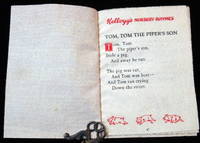 Kellogg's NURSERY RHYMES
TOM, TOM THE PIPER'S SON
Tom, Tom
The piper's son,
Stole a pig,
And away he run.
The pig was eat,
And Tom was beat—
And Tom ran crying
Down the street.